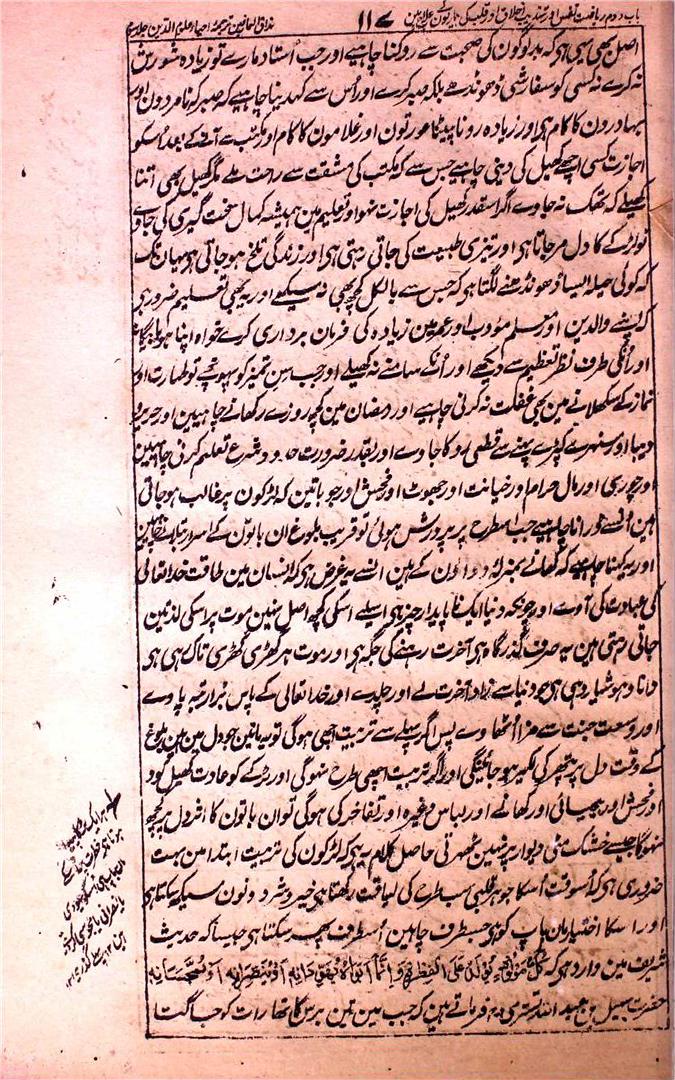 باب دوم ریاضت نفس اور تہذیب اخلاق اور قلب کی بیماریوں کے علاج میں ۱۱۷ مذاق العارفین ترجمہ احیاء علوم الدین جلد سوم
اصل بھی یہی ہی کہ بد لوگون کی صحبت سے روکنا چاہیے اور جب اُستاد مارے تو زیادہ شور و شش
نہ کرے نہ کسی کو سفارشی ڈھونڈھے بلکہ صبر کرے اور اُس سے کہدینا چاہیے کہ صبر کرنا مردون اور
بہادرون کا کام ہی اور زیادہ رونا پیٹنا عورتون اور غلامون کا کام اور مکتب سے آنے کے بعد اُسکو
اجازت کسی اچھے کھیل کی دینی چاہیے جس سے کہ مکتب کی مشقت سے راحت ملے مگر کھیل بھی اتنا
کھیلے کہ تھک نہ جاوے اگر اسقدر کھیل کی اجازت نہو اور تعلیم مین ہمیشہ کمال سخت گیری کی جاوے
تو لڑکے کا دل مر جاتا ہی اور تیزی طبیعت کی جاتی رہتی ہی اور زندگی تلخ ہو جاتی ہی یہان تک
کہ کوئی حیلہ ایسا ڈھونڈھنے لگتا ہی کہ جس سے بالکل کچھ بھی نہ سیکھے اور یہ بھی تعلیم ضرور ہی
کہ اپنے والدین اور معلم مؤدب اور عمر مین زیادہ کی فرمان برداری کرے خواہ اپنا ہو یا بیگانہ
اور اُنکی طرف نظر تعظیم سے دیکھے اور اُنکے سامنے نہ کھیلے اور جب سن تمیز کو پہونچے تو طہارت اور
نماز کے سکھلانے مین بھی غفلت نہ کرنی چاہیے اور رمضان مین کچھ روزے رکھانے چاہیین اور حریر و
دیبا اور سنہرے کپڑے پہننے سے قطعی روکا جاوے اور بقدر ضرورت حدود شرع تعلیم کرنی چاہیین
اور چوری اور مال حرام اور خیانت اور جھوٹ اور فحش اور جو باتین کہ لڑکون پر غالب ہو جاتی
ہین اُنسے ڈرانا چاہیے جب اسطرح پر پرورش ہوئی تو قریب بلوغ ان باتون کے اسرار بتلانے چاہیین
اور یہ کہنا چاہیے کہ کھانے بمنزلہ دواؤن کے ہین انسے یہ غرض ہی کہ انسان مین طاقت خدا تعالی
کی عبادت کی آوے اور چونکہ دنیا ایک ناپایدار چیز ہی اسلیے اسکی کچھ اصل نہین موت پر اسکی لذتین
جاتی رہتی ہین یہ صرف گذرگاہ ہی آخرت رہنے کی جگہ ہی اور موت ہر گھڑی گھڑی تاک رہی ہی
دانا و ہوشیار وہی ہی جو دنیا سے زاد آخرت لے اور چلدے اور خدا تعالی کے پاس بڑا رتبہ پاوے
اور وسعت جنت سے مزا اُٹھاوے پس اگر پہلے سے تربیت اچھی ہوگی تو یہ باتین جو دل مین بلوغ
کے وقت دل پر پتھر کی لکیر ہو جائینگی اور اگر تربیت اچھی طرح نہوگی اور لڑکے کو عادت کھیل کود
اور فحش اور بیحیائی اور کھانے اور لباس وغیرہ اور تفاخر کی ہوگی تو ان باتون کا اثر دل پر کچھ
نہوگا جیسے خشک مٹی دیوار پر نہین ٹھہرتی حاصل کلام یہ ہی کہ لڑکون کی تربیت ابتدا مین بہت
ضروری ہی کہ اُسوقت اُسکا جوہر قلبی سب طرح کی لیاقت رکھتا ہی خیر و شر دونون سیکھ سکتا ہی
اور اسکا اختیار مان باپ کو ہی جسطرف چاہین اُسطرف پھیر سکتا ہی جیسا کہ حدیث
شریف مین وارد ہی کہ کُلُّ مَوْلُوْدٍ یُوْلَدُ عَلَی الْفِطْرَۃِ وَاِنَّمَا اَبَوَاہُ یُہَوِّدَانِہٖ اَوْ یُنَصِّرَانِہٖ اَوْ یُمَجِّسَانِہٖ
حضرت سہیل بن عبد اللہ تستری رح فرماتے ہین کہ جب مین تین برس کا تھا رات کو جاگتا